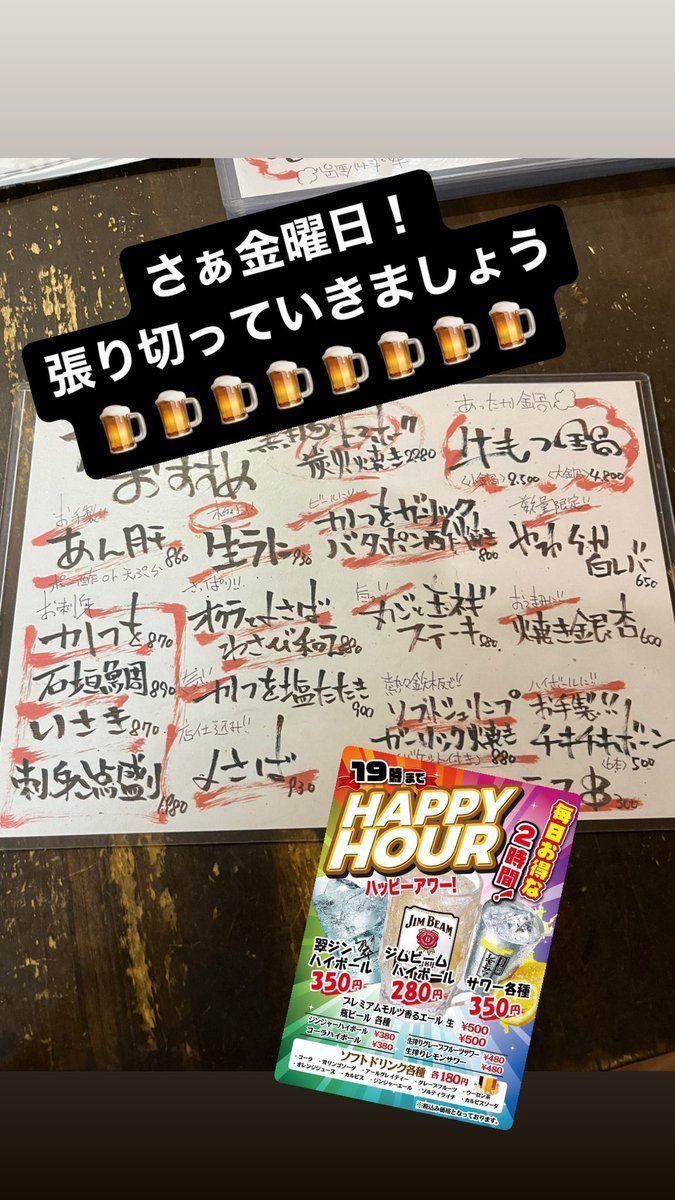 さぁ金曜日！
張り切っていきましょう
🍺🍺🍺🍺🍺🍺🍺🍺
おすすめ
炭火焼き 2280
あったか鍋
牛もつ鍋
<小鍋> 2,500 <大鍋> 4,800
お手製
あん肝 860
ポン酢 or 天ぷら
生ラム 930
ビールに!!
かつをガーリック
バタポン酢焼き 800
数量限定!!
やわらか
白レバー 650
お刺身
かつを 870
石垣鯛 890
いさき 870
刺身点盛り 1,980
さっぱり!!
オクラとよさば
わさび和え 880
かつを塩たたき 900
店仕込み!!
よさば 930
ステーキ 880
おつまみ!!
焼き銀杏 600
熱々鉄板で!!
ソフトシュリンプ
ガーリック焼き 880
バケット(付き)
ハイボールに!!
お手製!!
チキチキボーン
(6本) 500
300
19時まで
HAPPY
HOUR
ハッピーアワー！
毎日お得な
2時間！
JIM BEAM
翠ジン
ハイボール
350円
ジムビーム
ハイボール
280円
サワー各種
350円
プレミアムモルツ香るエール 生 ¥500
瓶ビール 各種 ¥500
ジンジャーハイボール ¥380
コーラハイボール ¥380
生搾りグレープフルーツサワー ¥480
生搾りレモンサワー ¥480
ソフトドリンク各種 各180円
・コーラ ・青リンゴソーダ ・アールグレイティー ・グレープフルーツ ・ウーロン茶
・オレンジジュース ・カルピス ・ジンジャーエール ・ソルティライチ ・カルピスソーダ
※税込み価格となっております。